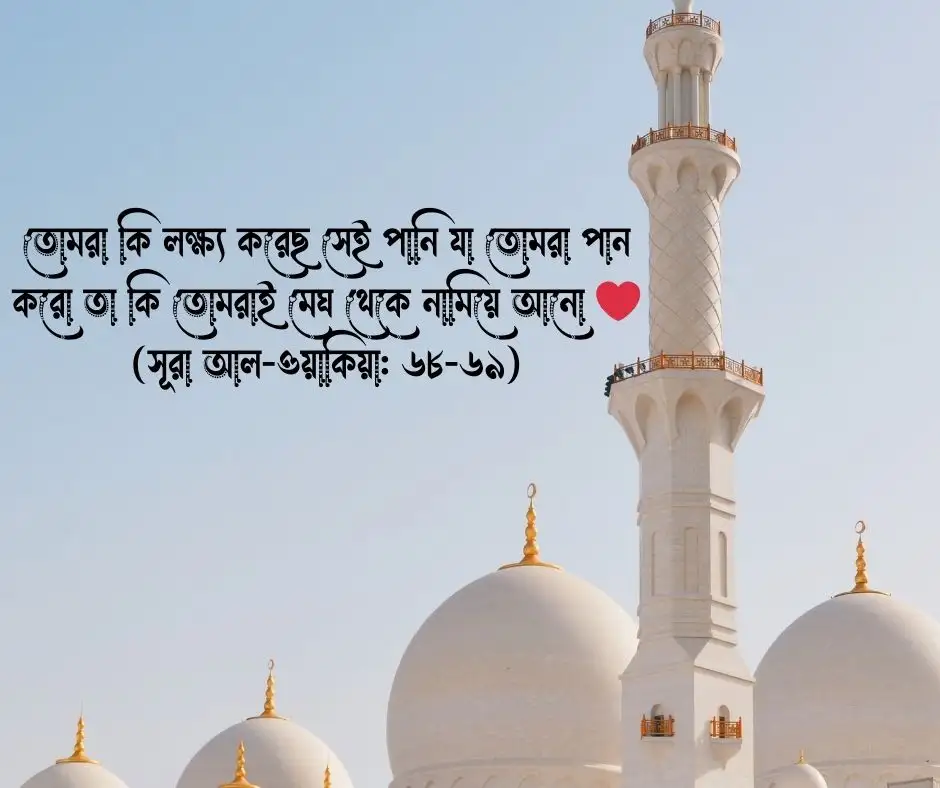 তোমরা কি লক্ষ্য করেছ সেই পানি যা তোমরা পান
করো তা কি তোমরাই মেঘ থেকে নামিয়ে আনো ❤️
(সূরা আল-ওয়াকিয়া: ৬৮-৬৯)